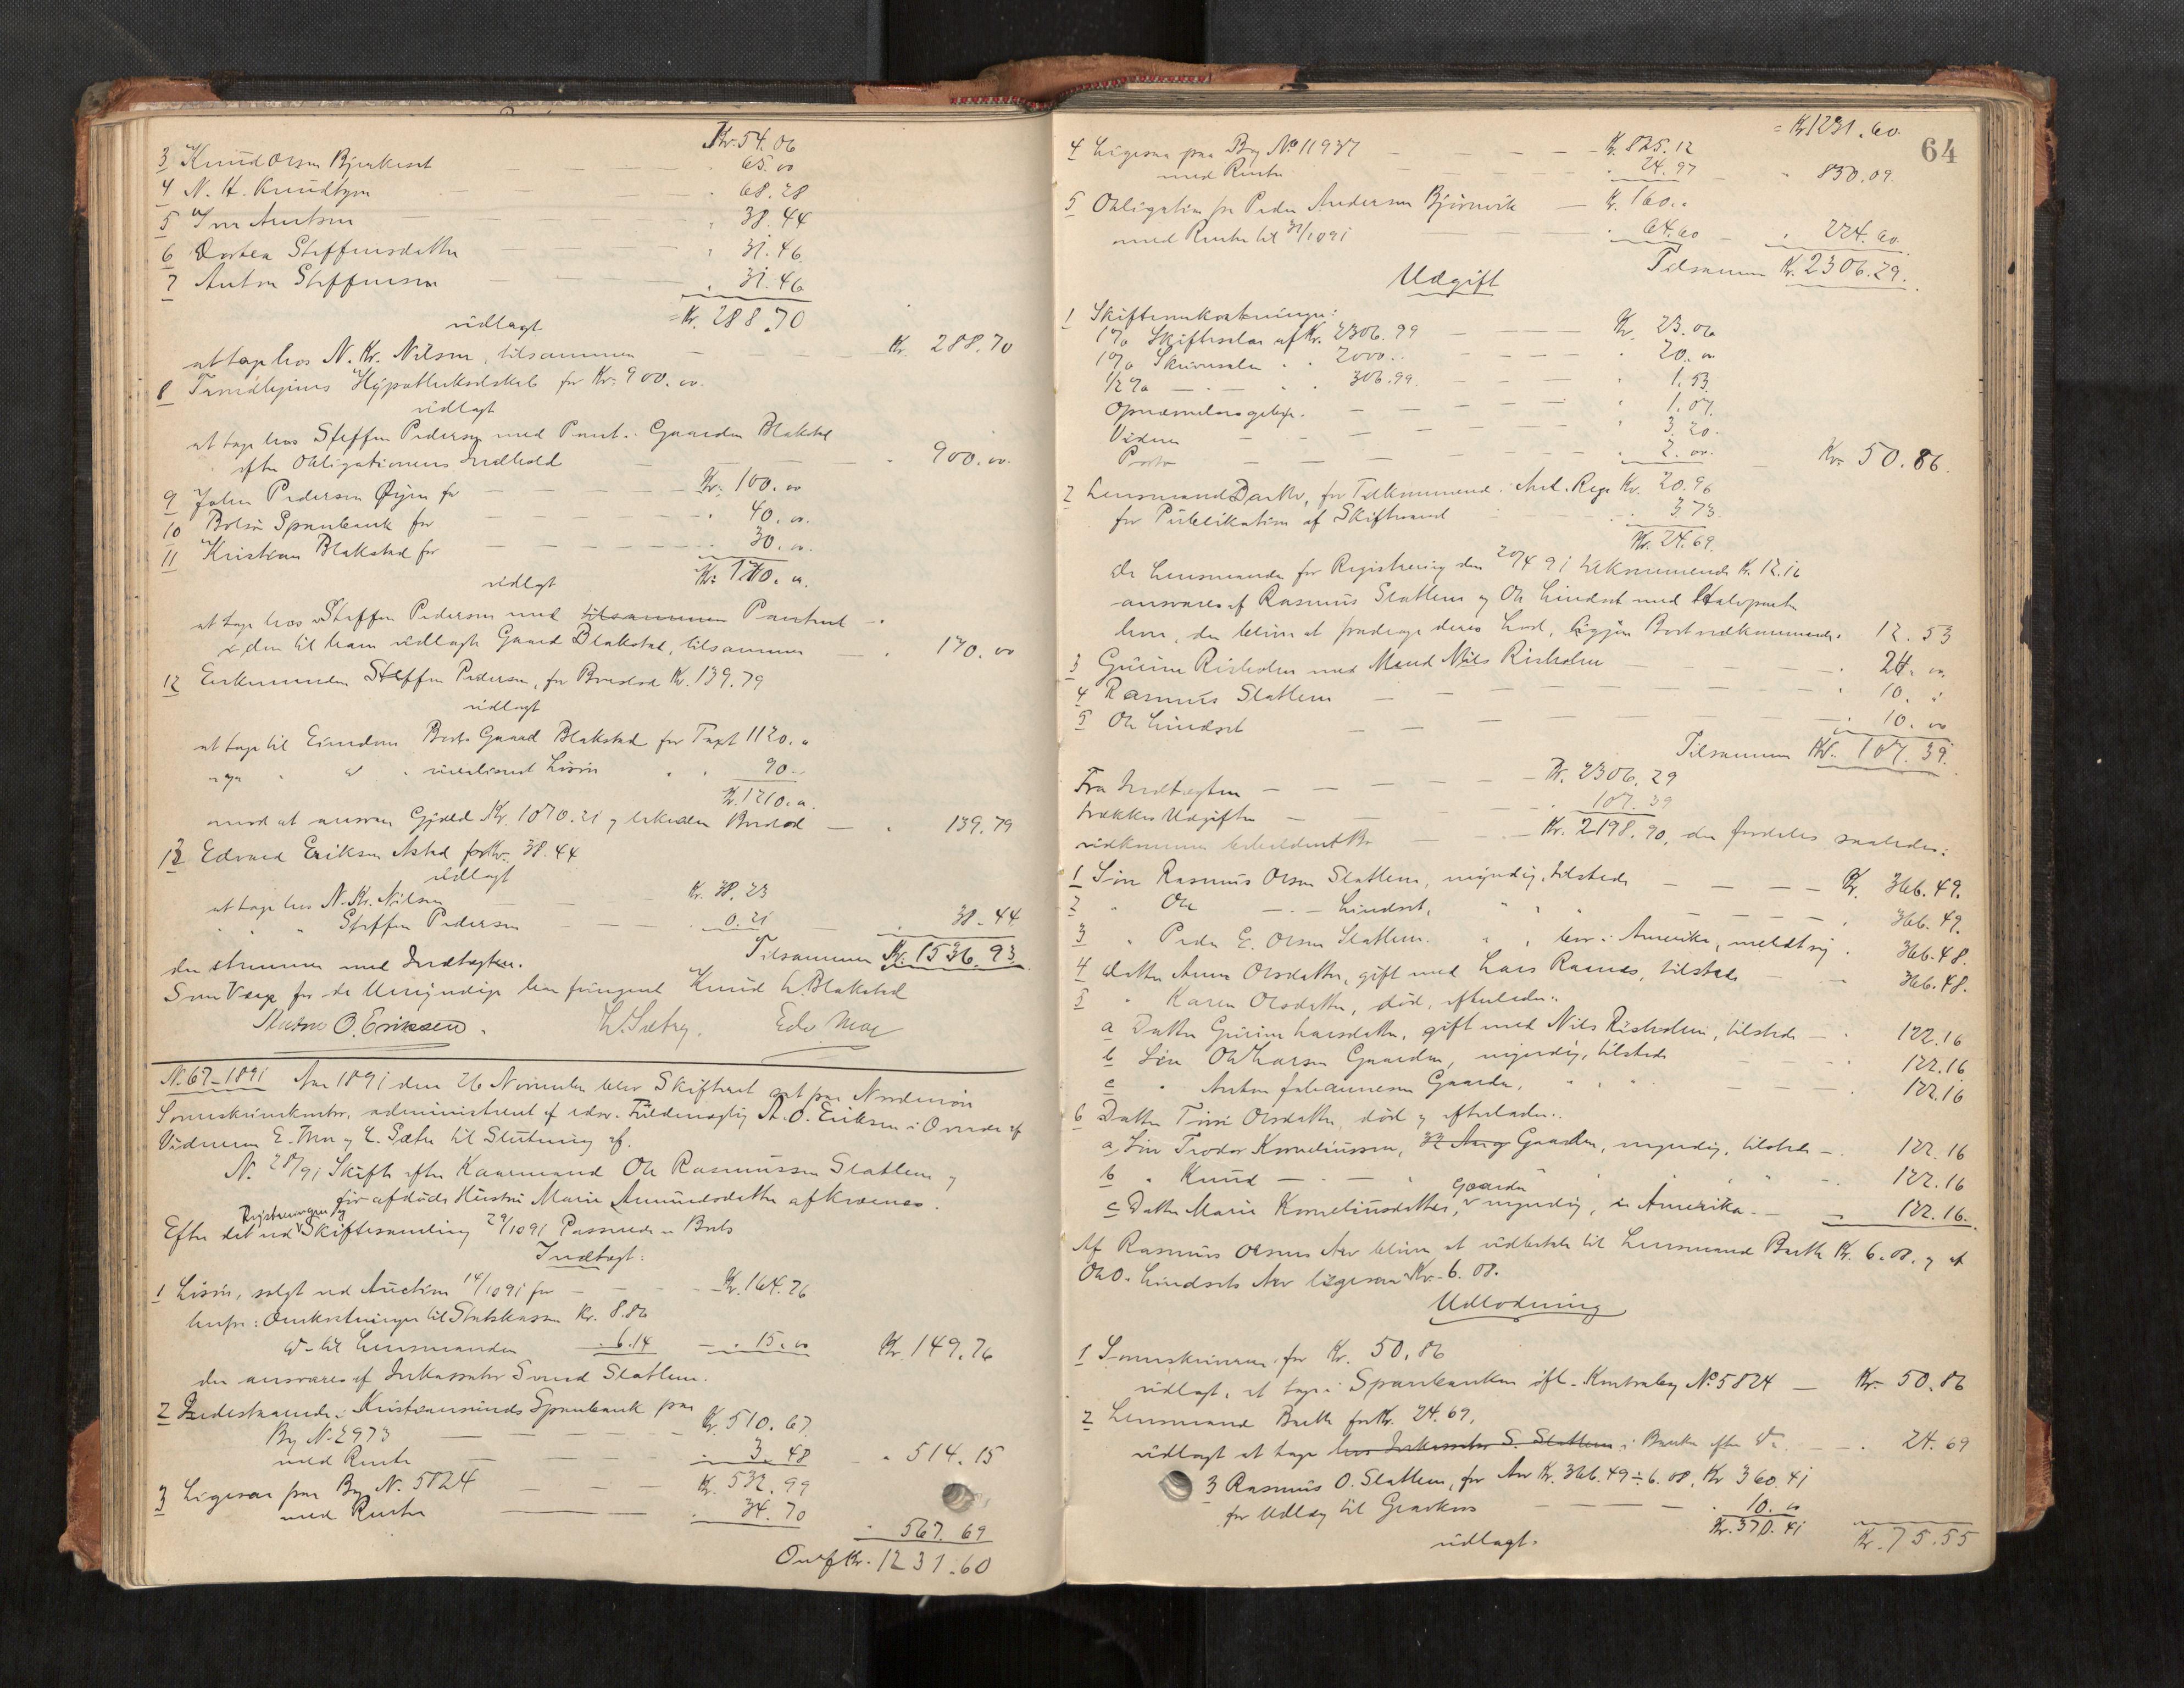 Kr. 54.06
3 Knud Olsen Bjerkeset — — — 65.00
4 N. H. Knudtzon — — 68.28
5 Iver Antsen 38.44
6 Dortea Steffensdatter — — 31.46
7 Anton Steffensen — — 31.46
= Kr. 288.70
udlagt
at tage hos N. Kr. Nilsen, tilsammen — Kr. 288.70
8 Trondhjems Hypothekselskab for Kr. 900.00
udlagt
at tage hos Steffen Pedersen med Pant i Gaarden Blakstad
efter Obligationens Indhold — — 900.00
9 John Pedersen Øyen for — — Kr. 100.00
10 Bolsø Sparebank for — — 40.00
11 Kristian Blakstad for — — 30.00
udlagt Kr. 170.00
at tage hos Steffen Pedersen med tilsammen Panteret
i den til ham udlagte Gaard Blakstad, tilsammen — 170.00
12 Enkemanden Steffen Pedersen, for Broslod Kr. 139.79
udlagt
at tage til Eiendom Boets Gaard Blakstad for Taxt 1120.00
" " " do " uværdisat Løsøre " " 90.-
Kr. 1210.00
mod at ansvare Gjæld Kr. 1070.21 og beholde Broslod — 139.79
13 Edvard Eriksen Astad for Kr. 38.44
udlagt
at tage hos N. Kr. Nilsen — — Kr. 38.23
" " " Steffen Pedersen — — 0.21 38.44
Tilsammen Kr. 1536.93
der stemmer med Indtægten.
Som Værge for de Umyndige har fungeret Knud L. Blakstad
O. Eriksen. L. Sæther. Edv. Moe
N. 67-1891 Aar 1891 den 26 November blev Skifteret sat paa Nordmøre
Sorenskriverkontor, administreret af edsv. Fuldmægtig A. O. Eriksen i Overvær af
Vidnerne E. Moe og L. Sæter til Slutning af.
N. 28/91 Skifte efter Kaarmand Ole Rasmussen Slatlem og
før afdøde Hustru Marie Amundsdatter af Kvernes.
Registreringen og
Efter det ved Skiftesamling 29/10 91 Passerede er Boets
Indtægt:
1 Løsøre, solgt ved Auction 14/10 91 for — — Kr. 164.76
herfra: Omkostninger til Statskassen Kr. 8.86
do til Lensmanden 6.14 — 15.00 Kr. 149.76
der ansvares af Inkassator Svend Slatlem.
2 Indestaaende i Kristianssunds Sparebank paa
Bog N. 2973 — — Kr. 510.67
med Renter — — 3.48 — " 514.15
3 Ligesaa paa Bog N. 5824 — — Kr. 532.99
med Renter — — 34.70
" 567.69
Overf. Kr. 1231.60
64
= Kr. 1231.60
4 Ligesaa paa Bog No 11937 — — — Kr. 825.12
med Renter — — 24.97 — " 850.09
5 Obligation fra Peder Andersen Bjørnvik — Kr. 160.00
med Renter til 31/10 91 — — 64.60 — 224.60
Tilsammen Kr. 2306.29
Udgift
1 Skifteomkostninger:
1% Skiftesalær af Kr. 2306.99 — — — Kr. 23.06
1% Skriversalær " " 2000.. — — — " 20.00
1/2% — — " " 306.99 — — " 1.53
Opnævnelsesgebyr. — — — " 1.07
Vidner — — — — " 3.20
Porto — — — — " 2.00 — Kr. 50.86
2 Lensmand Barthe, for Tilkommende i Anl. Regn. Kr. 20.96
for Publikation af Skifterand — 3.73
Kr. 24.69
De Lensmanden for Registrering den 20/4 91 tilkommende Kr. 12.16
ansvares af Rasmus Slatlem og Ole Lindset med Halvparten
hver, der bliver at fradrage deres Lod, ligger Boet vedkommende 12.53
3 Gurine Risholm med Mand Nils Risholm — — 24.00
4 Rasmus Slatlem — — — — 10. "
5 Ole Lindset — — — — 10.00
Tilsammen Kr. 107.39
Fra Indtægten — — — Kr. 2306.29
trækkes Udgiften — — — 107.39
udkommer beholdent Bo — — Kr. 2198.90, der fordeles saaledes:
1 Søn Rasmus Olsen Slatlem, myndig, tilstede — — — Kr. 366.49.
2 " Ole — " — Lindset, " " — — — 366.49.
3 " Peder E. Olsen Slatlem. " , bor i Amerika, meldt sig. 366.48.
4 Datter Anne Olsdatter, gift med Lars Ramnes, tilstede — 366.48.
5 " Karen Olsdatter, død, efterlader:
a Datter Gurine Larsdatter, gift med Nils Risholm, tilstede — 122.16
b Søn Ole Larsen Gaarden, myndig, tilstede — — 122.16
c " Anton Johannesen Gaarden, " " " — — 122.16
6 Datter Olsdatter, død og efterlader:
a Søn Trodor Korneliussen, Gaarden, myndig, tilstede — 122.16
b " Knud — " — " " " — 122.16
Gaarden
c Datter Marie Korneliusdatter, myndig, i Amerika — 122.16.
Af Rasmus Olsens Arv bliver at udbetale til Lensmand Barthe Kr. 6.08, og af
Ole O. Lindsets Arv ligesaa Kr. 6.08.
Udlodning
1 Sorenskriveren for Kr. 50.86
udlagt, at tage i Sparebanken ifl. Kontrabog No 5824 — Kr. 50.86
2 Lensmand Barthe for Kr. 24.69.
udlagt at tage hos Inkassator S. Slatlem i Banken efter do — 24.69
3 Rasmus O. Slatlem, for Arv Kr. 366.49 ÷ 6.08, Kr. 360.41
for Udlæg til — — — 10.00
Kr. 370.41
udlagt.
Kr. 75.55